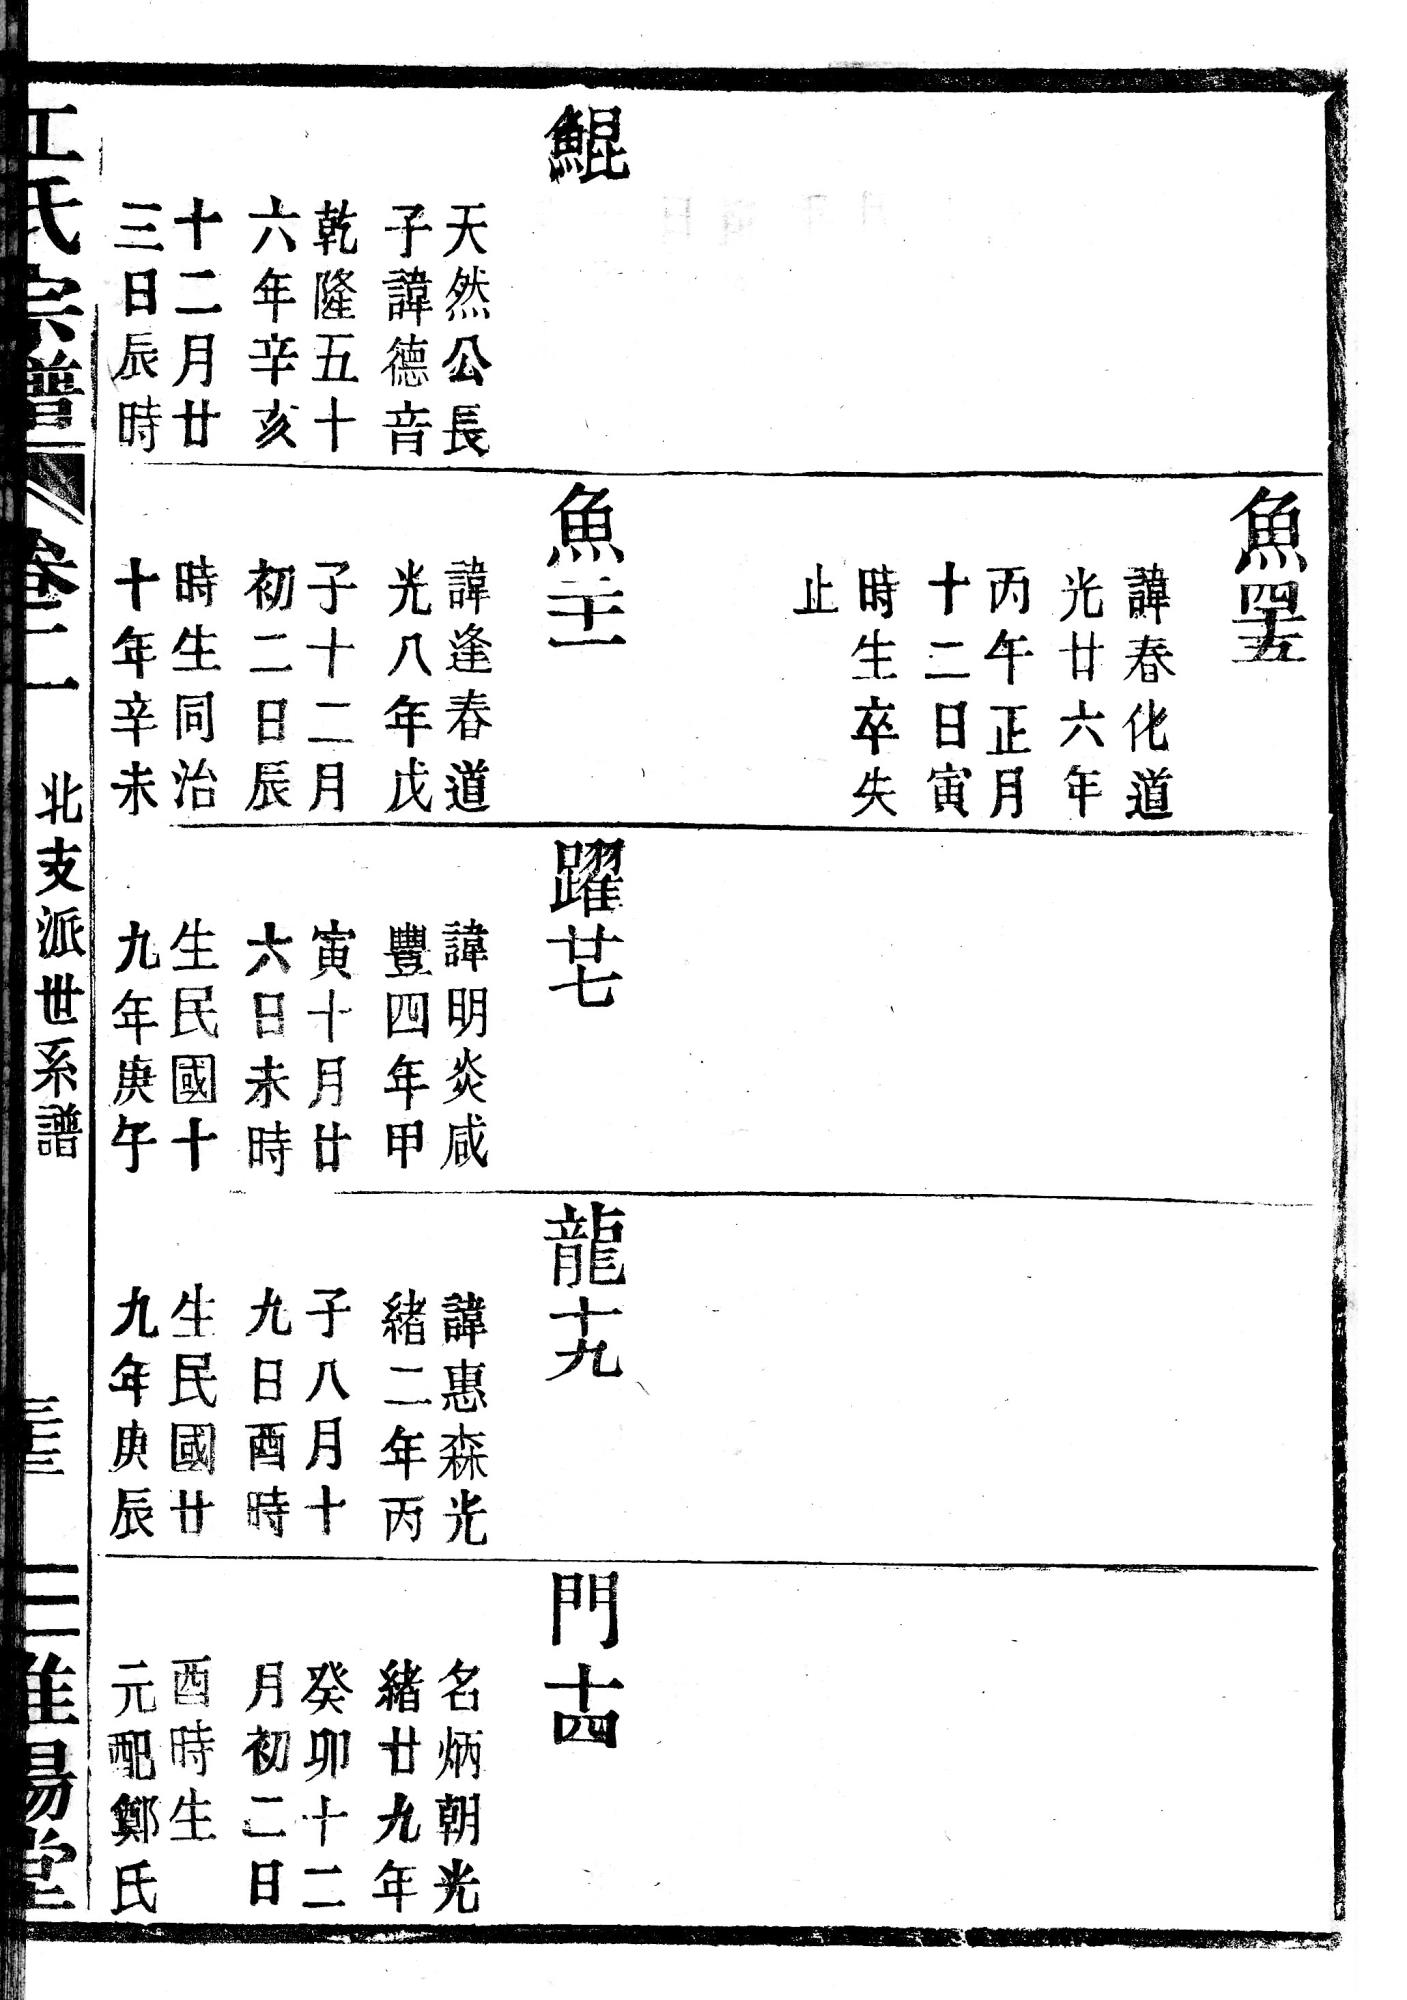 鯤
天然公長
子諱德音
乾隆五十
六年辛亥
十二月廿
三日辰時
魚四十五
諱春化道
光廿六年
丙午正月
十二日寅
時生卒失
止
魚二十一
諱逢春道
光八年戊
子十二月
初二日辰
時生同治
十年辛未
躍廿七
諱明炎咸
豐四年甲
寅十月廿
六日未時
生民國十
九年庚午
龍十九
諱惠森光
緒二年丙
子八月十
九日酉時
生民國廿
九年庚辰
門十四
名炳朝光
緒廿九年
癸卯十二
月初二日
酉時生
元配鄭氏
江氏宗譜
北支派世系譜
淮陽堂